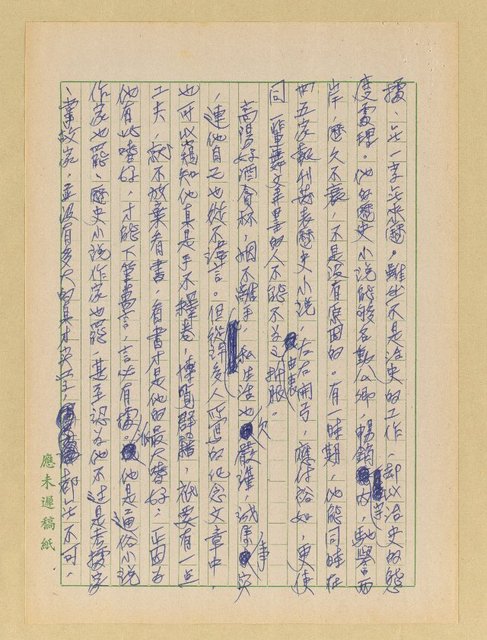 據，無一事無來歷。雖然不是治史的工作，卻以治史的態
度處理。他的歷史小說能夠名動公卿，暢銷海內，馳譽兩
岸，歷久不衰，不是沒有原因的。有一時期，他能同時在
四五家報刊發表歷史小說，左右開弓，應付裕如，更使
同一輩舞文弄墨的人不能不為之折服。由衷
高陽好酒貪杯，烟不離手，私生活也欠嚴謹，誠屬事實
，連他自己也從不諱言。但從許多人所寫的紀念文章中，
也可以窺知他真是手不釋卷，博覽群籍，祇要有一點
工夫，就不放棄看書，看書才是他的最大嗜好。正因為
他有此嗜好，才能下筆萬言，言必有據。他是通俗小說
作家也罷，歷史小說作家也罷，甚至認為他不過是考據家
、掌故家，並沒有多大的真才實學，都無不可，
應未遲稿紙